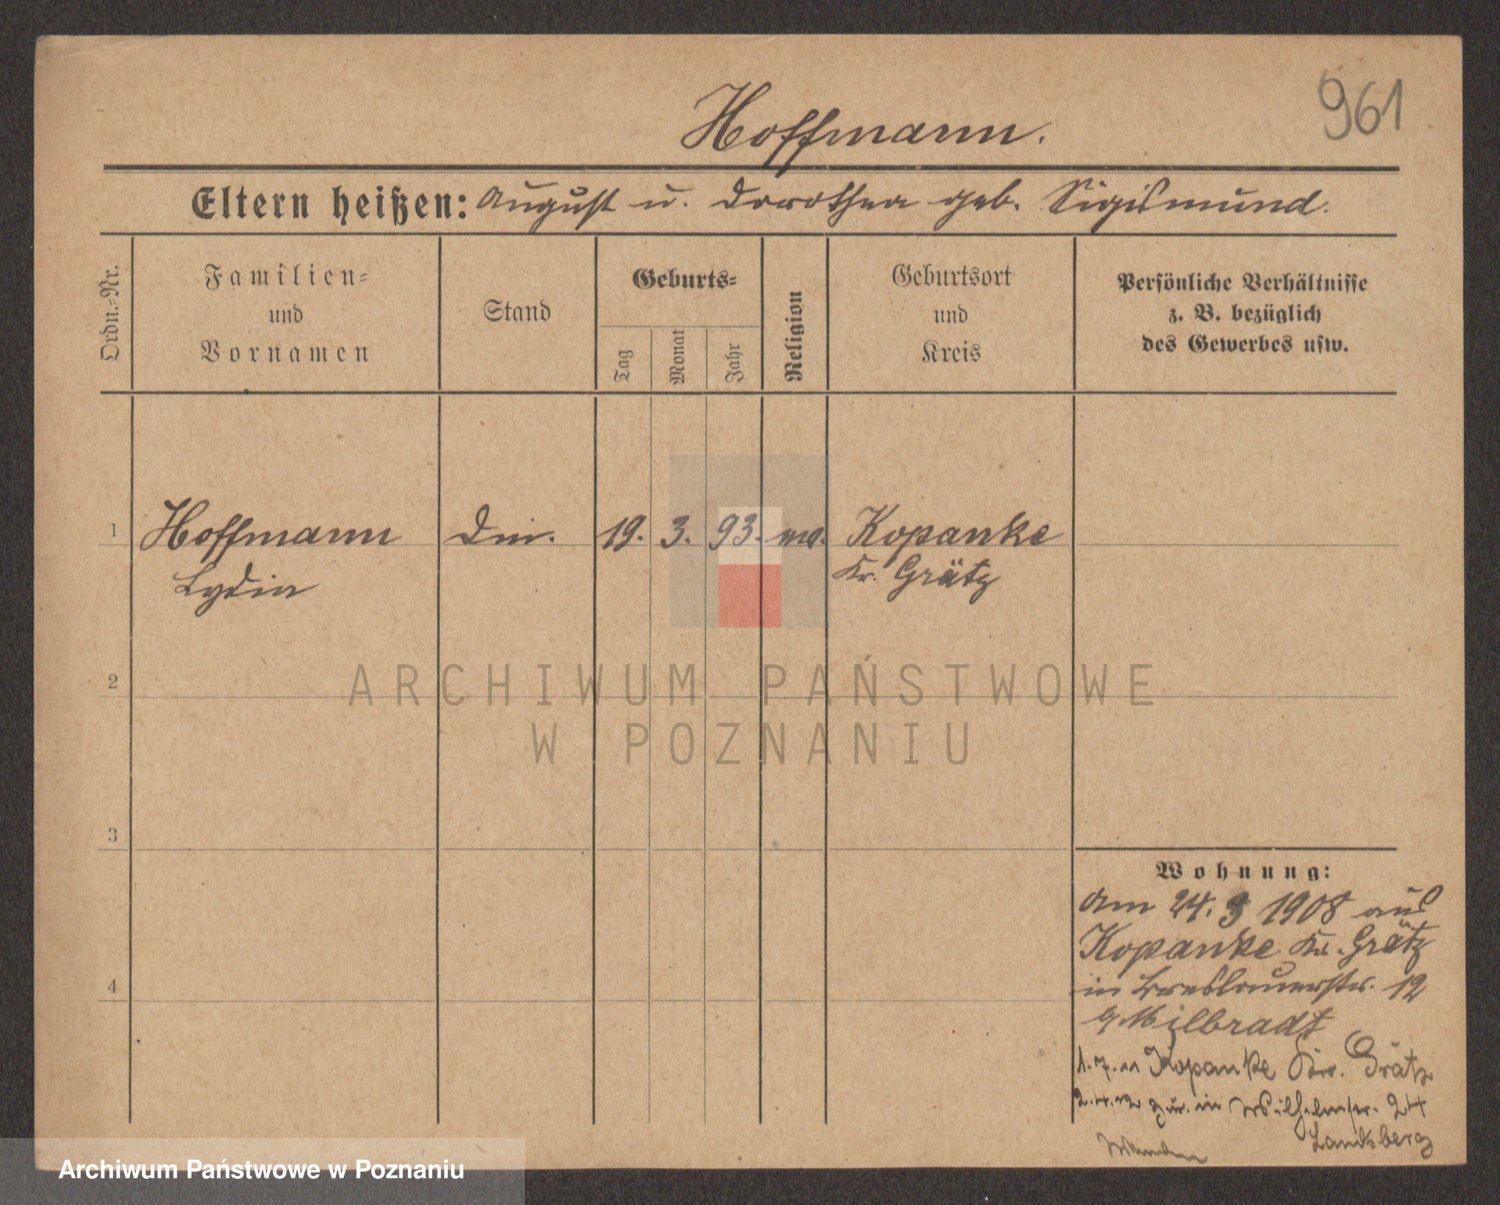 961
Hoffmann.
Eltern heißen: August u. Dorothea geb. Sigismund.
Ordn.=Nr.
Familien=
und
Vornamen
Stand
Geburts=
Tag
Monat
Jahr
Religion
Geburtsort
und
Kreis
Persönliche Verhältnisse
z. B. bezüglich
des Gewerbes usw.
1 Hoffmann 19. 3. 93. Kopanke
Lydia Kr. Grätz
2
ARCHIWUM PAŃSTWOWE
W POZNANIU
3
Wohnung:
am 24. 3 1908 aus
Kopanke Kr. Grätz
4
in Breslauerstr. 12
Milbradt
1.7.11 Kopanke Kr. Grätz
2.4.12 zur. in Wilhelmstr. 24
Landsberg
Archiwum Państwowe w Poznaniu